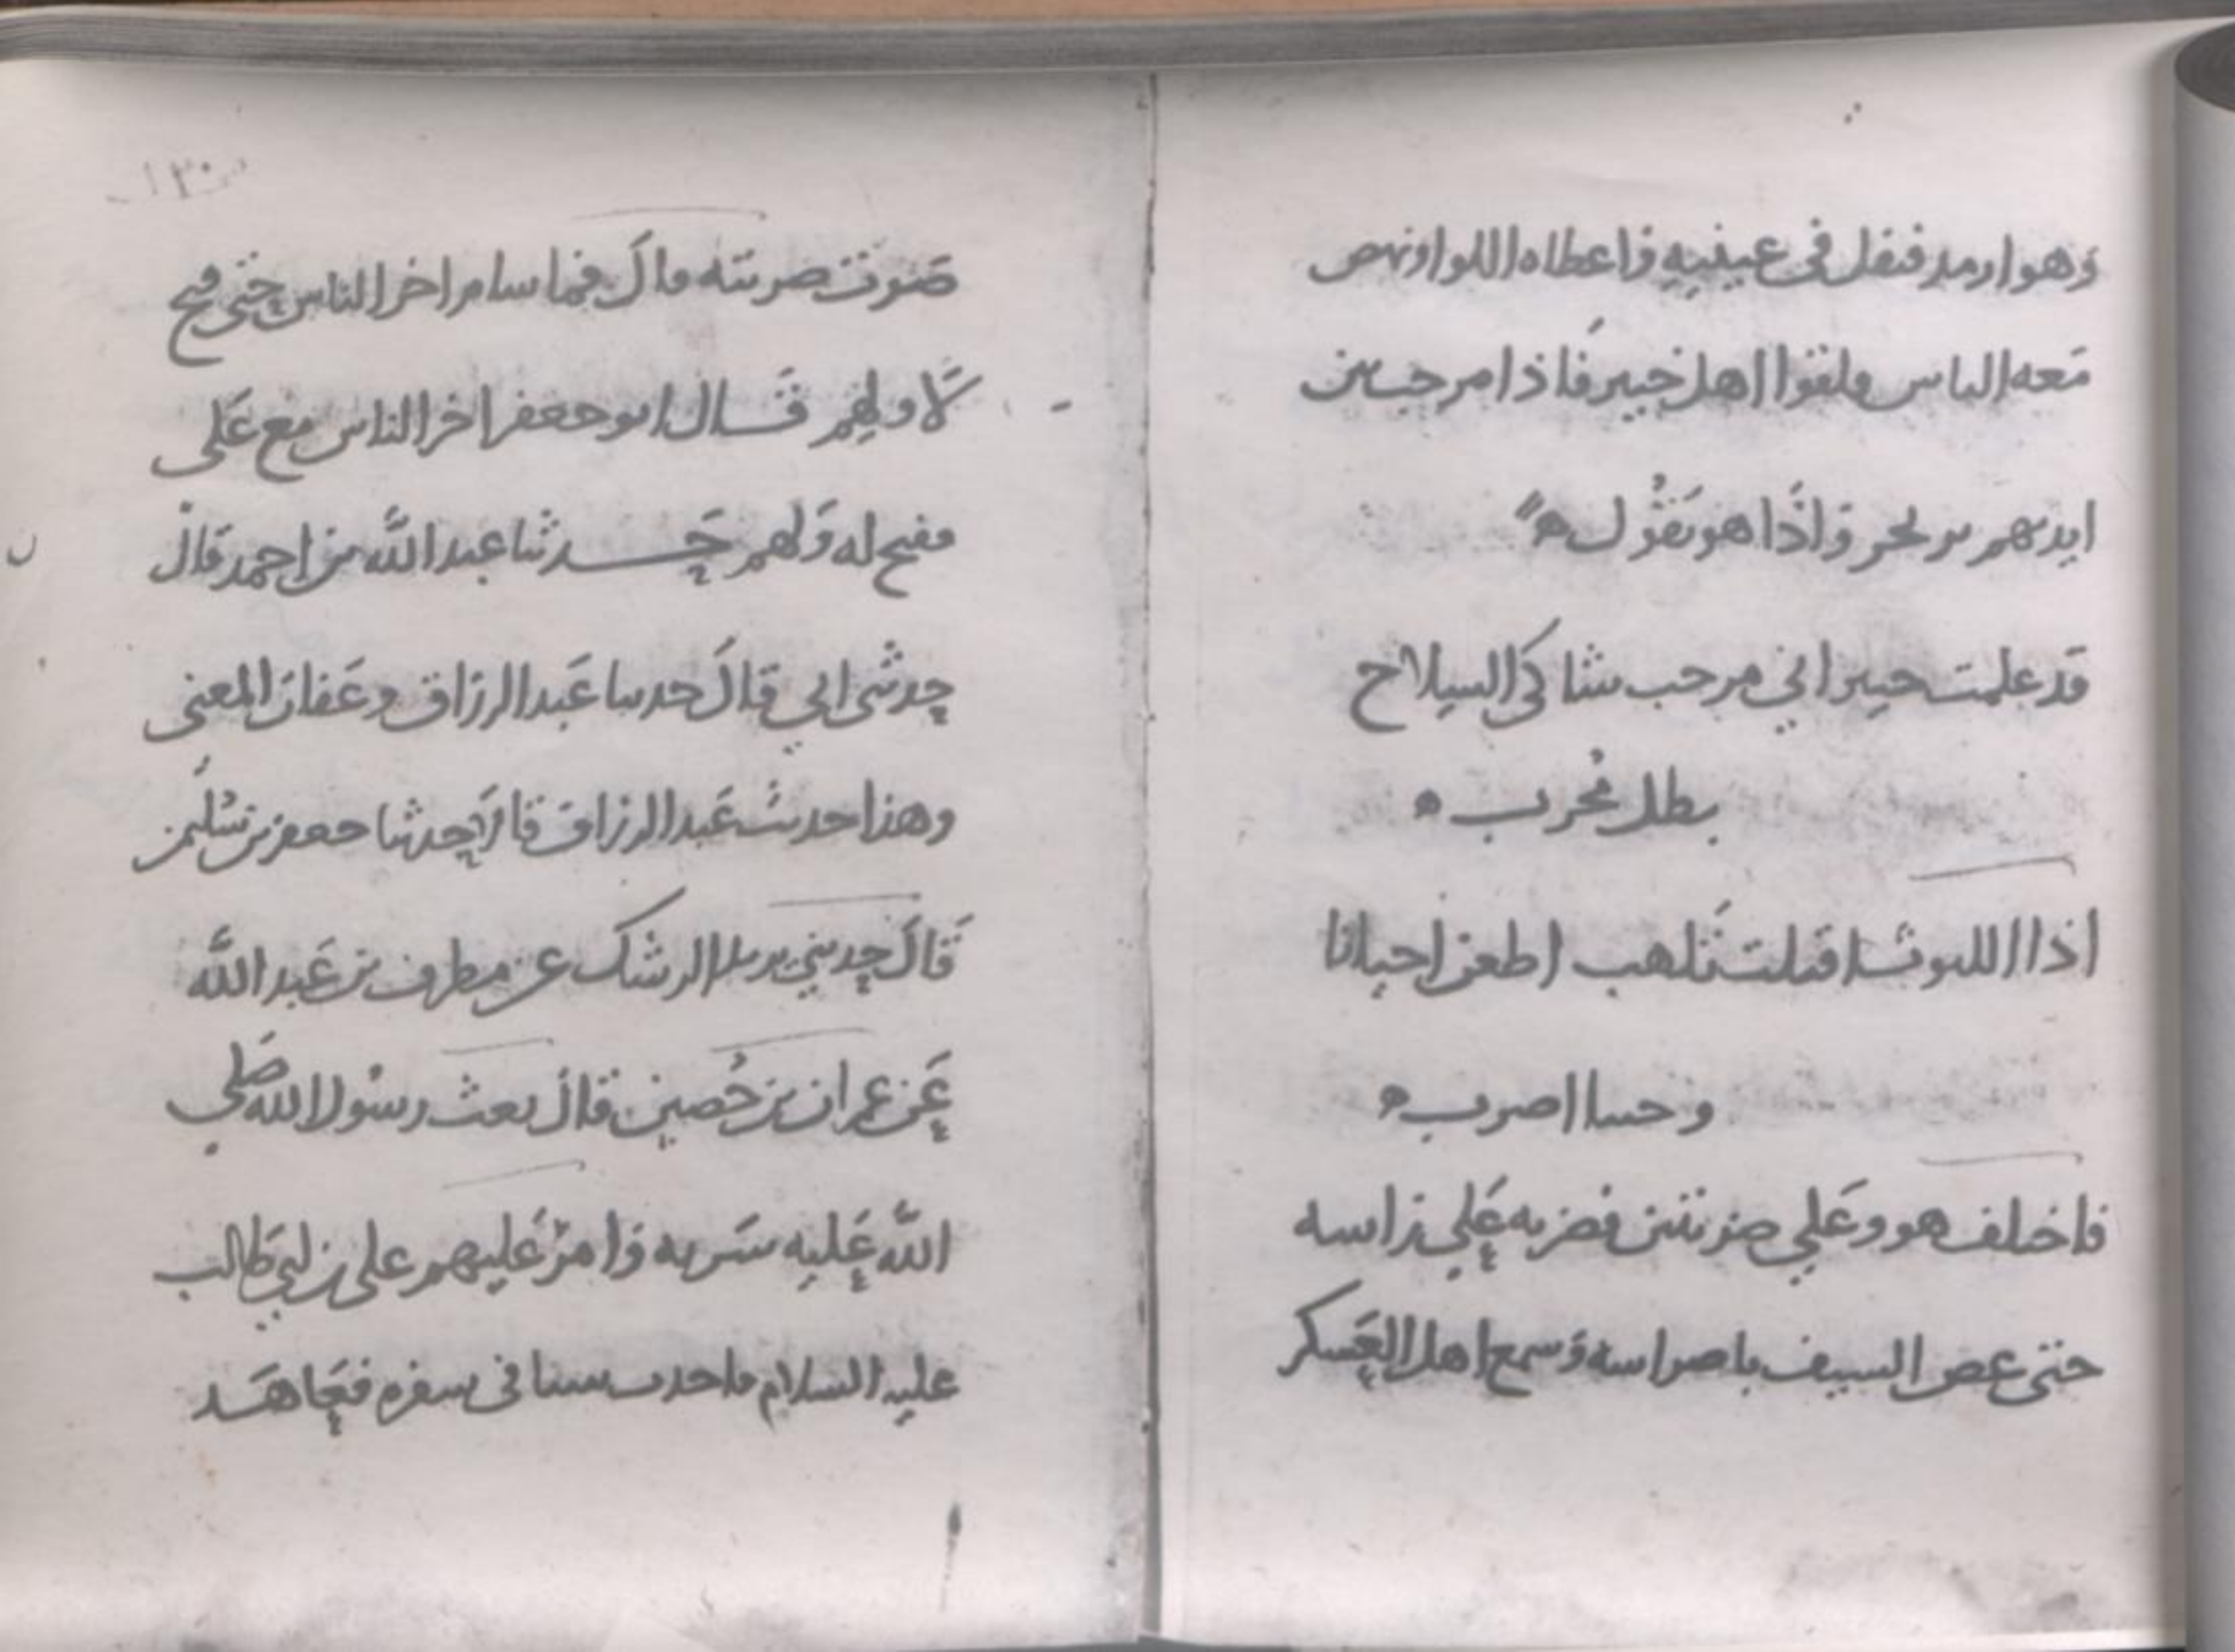 وهو ارمد فتفل في عينيه واعطاه اللوا ونهض
معه الناس ولقوا اهل خيبر فاذا مرحب بين
ايديهم يرتجز واذا هو يقول
قد علمت خيبر اني مرحب شاكي السلاح
بطل مجرب
اذا الليوث اقبلت تلهب اطعن احيانا
وحينا اضرب
فاختلف هو وعلي ضربتين فضربه علي راسه
حتى عض السيف باضراسه وسمع اهل العسكر
١٣٠
صوت ضربته قال فما تتام اخر الناس حتى فتح
لاولهم قال ابو جعفر اخر الناس مع على
ففتح له ولهم حدثنا عبد الله بن احمد قال
حدثنى ابي قال حدثنا عبد الرزاق وعفان المعنى
وهذا حديث عبد الرزاق قالا حدثنا جعفر بن سليمن
قال حدثني يزيد الرشك عن مطرف بن عبد الله
عن عمران بن حصين قال بعث رسول الله صلى
الله عليه سرية وامر عليهم على بن ابي طالب
عليه السلام فاحدث شيئا في سفره فتعاهد